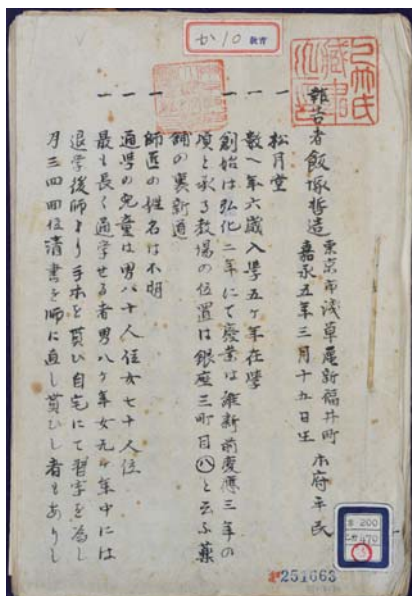 か10 教育
報告者飯塚哲造 東京市浅草區新福井町
嘉永五年三月十九日生 本府平民
一 松月堂
一 数ヘ年六歳入學五ヶ年在學
一 創始は弘化二年にて廢業は維新前慶應三年の
頃と承る教場の位置は銀座三町目㊇と云ふ薬
舗の裏新道
一 師匠の姓名は不明
一 通學の児童は男八十人位女七十人位
一 最も長く通学せる者男八ヶ年女九ヶ年中には
退学後師より手本を貰ひ自宅にて習字を為し
月三四囬位清書を師に直し貰ひし者もありし
200
470
251663